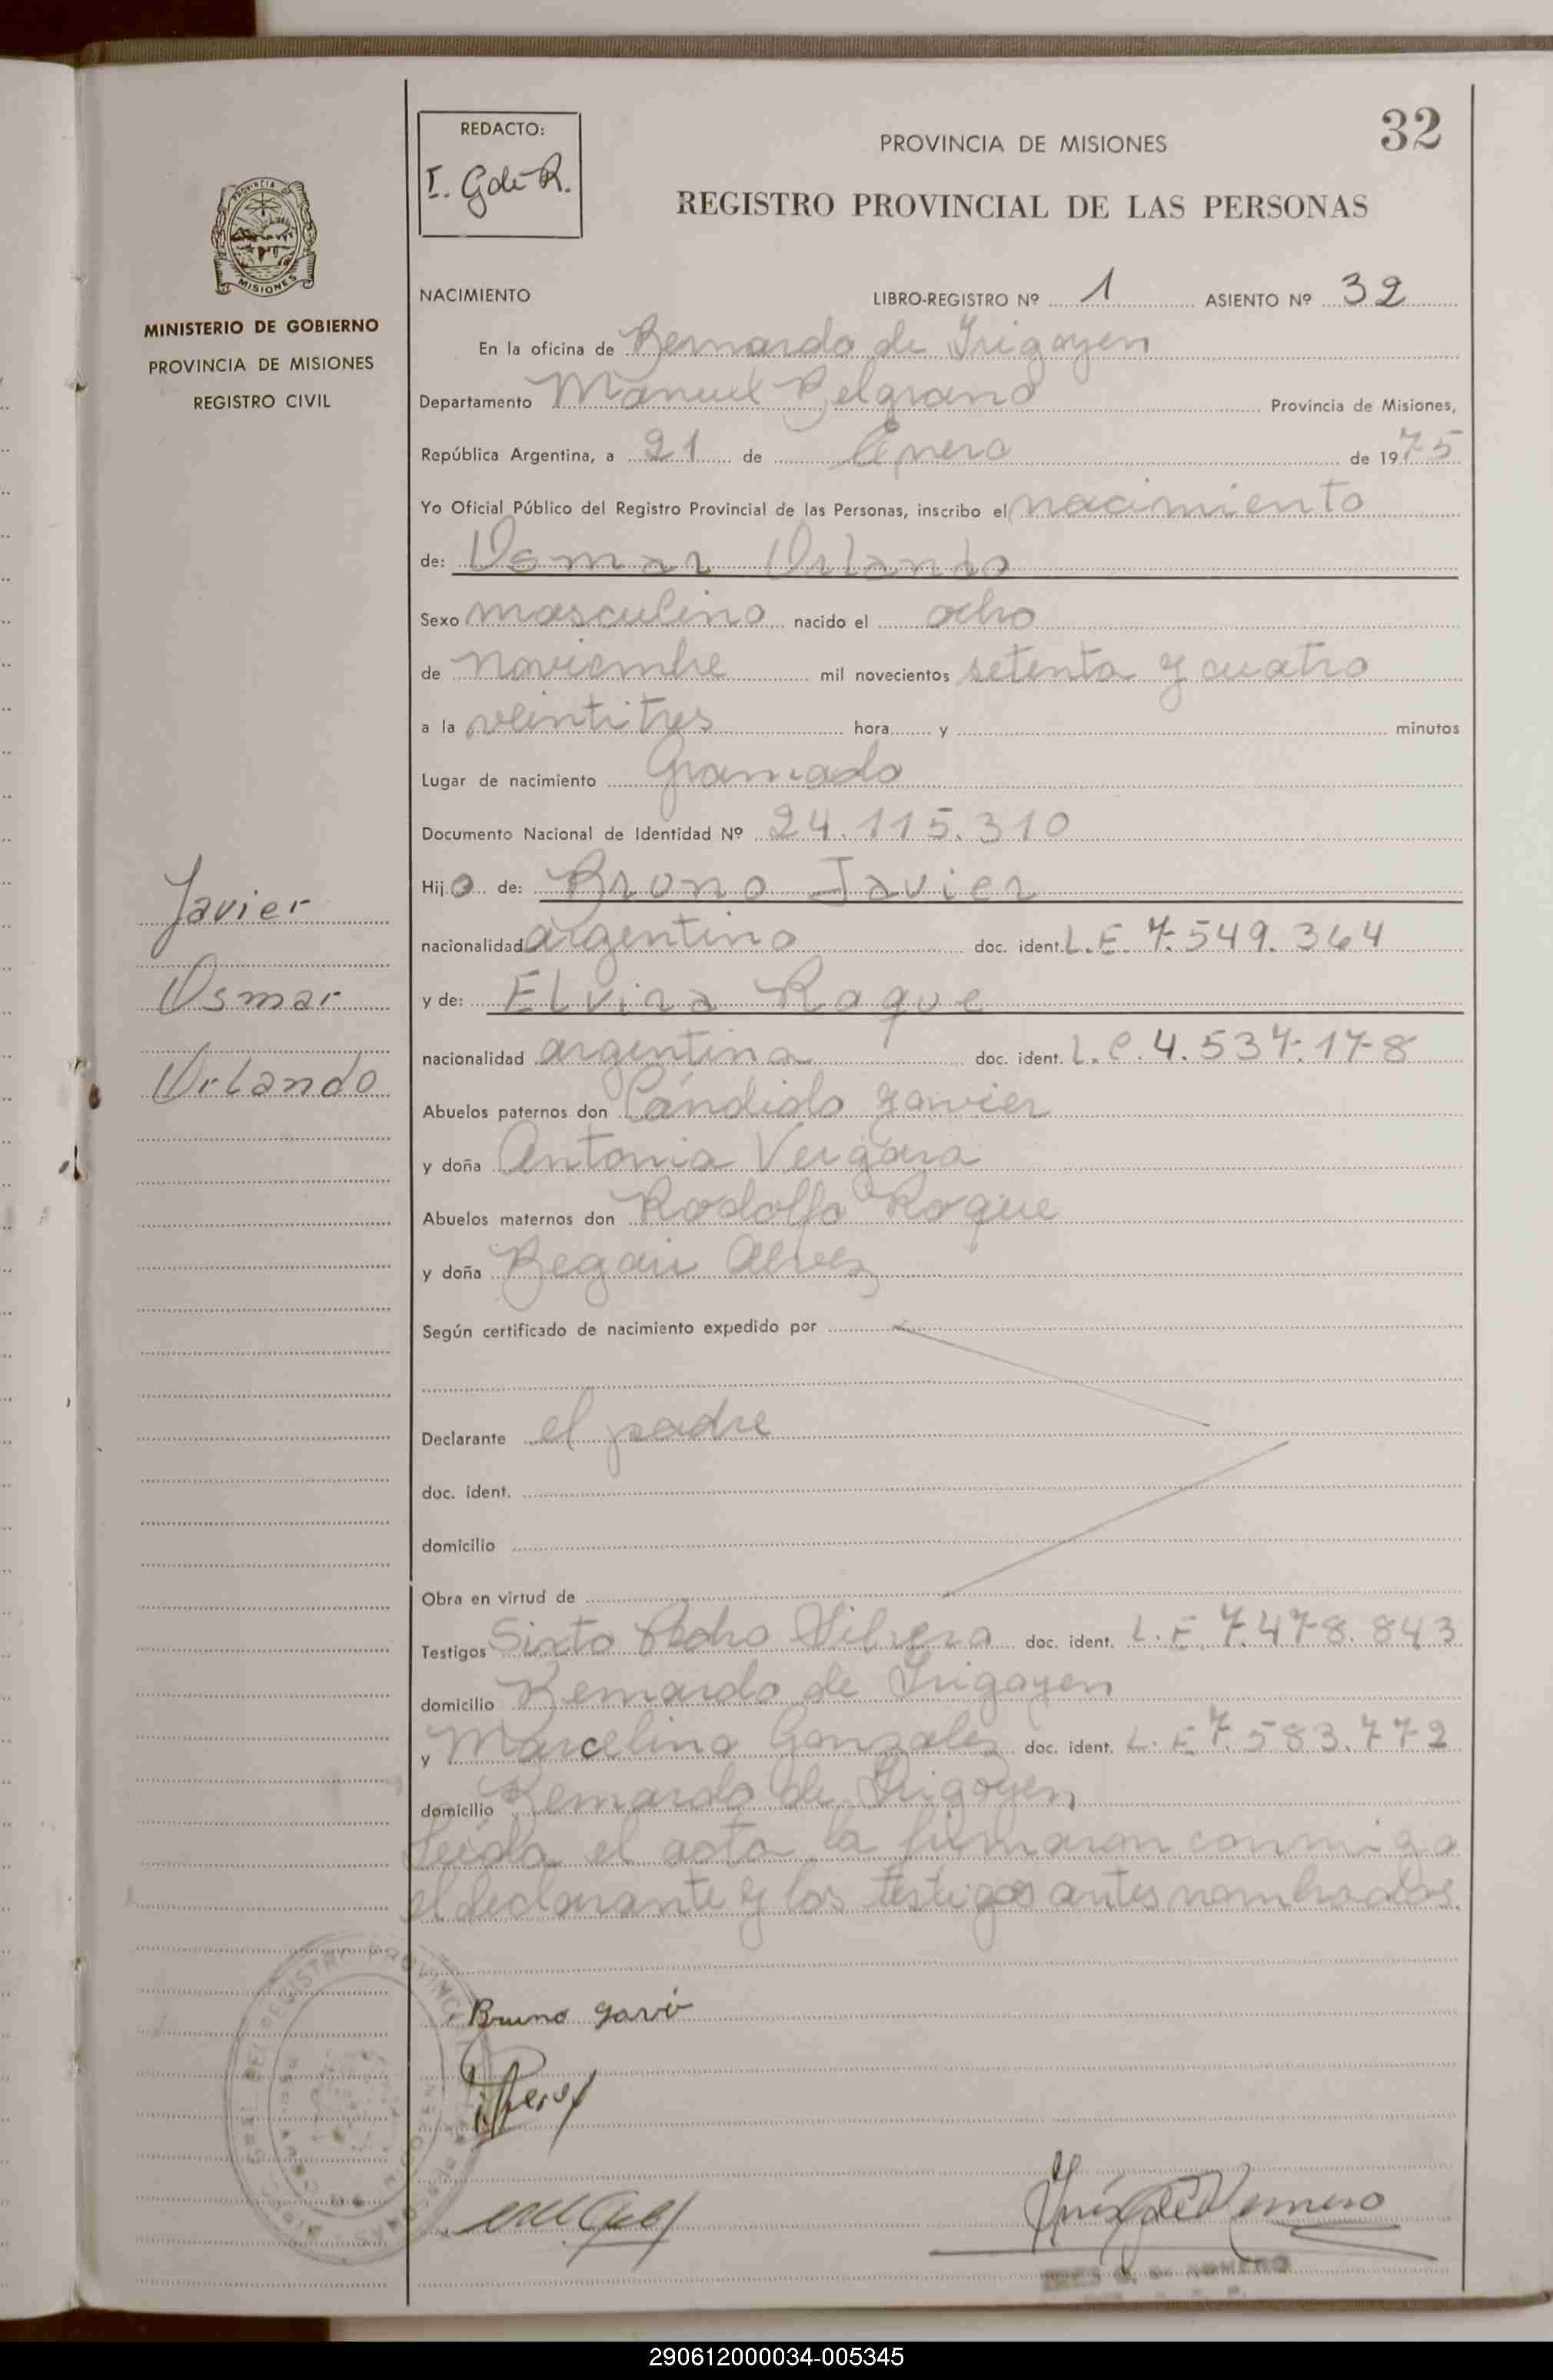 REDACTO:
I. G de R.
PROVINCIA DE MISIONES
32
REGISTRO PROVINCIAL DE LAS PERSONAS
PROVINCIA DE
MISIONES
MINISTERIO DE GOBIERNO
PROVINCIA DE MISIONES
REGISTRO CIVIL
NACIMIENTO LIBRO-REGISTRO Nº 1 ASIENTO Nº 32
En la oficina de Bernardo de Irigoyen
Departamento Manuel Belgrano Provincia de Misiones,
República Argentina, a 21 de Enero de 1975
Yo Oficial Público del Registro Provincial de las Personas, inscribo el nacimiento
de: Osmar Orlando
Sexo masculino nacido el ocho
de noviembre mil novecientos setenta y cuatro
a la veintitres hora y minutos
Lugar de nacimiento Gramado
Documento Nacional de Identidad Nº 24.115.310
Hijo de: Bruno Javier
nacionalidad argentino doc. ident. L.E. 7.549.364
y de: Elvira Roque
nacionalidad argentina doc. ident. L.C. 4.537.178
Abuelos paternos don Cándido Javier
y doña Antonia Vergara
Abuelos maternos don Rodolfo Roque
y doña Alves
Según certificado de nacimiento expedido por
Declarante el padre
doc. ident.
domicilio
Obra en virtud de
Testigos Sixto Pedro Silvera doc. ident. L.E. 7.478.843
domicilio Bernardo de Irigoyen
y Marcelino Gonzalez doc. ident. L.E 7.583.772
domicilio Bernardo de Irigoyen
Leída el acta, la firmaron conmigo
el declarante y los testigos antes nombrados.
Javier
Osmar
Orlando
Bruno Javi
INES G. de ROMERO
290612000034-005345